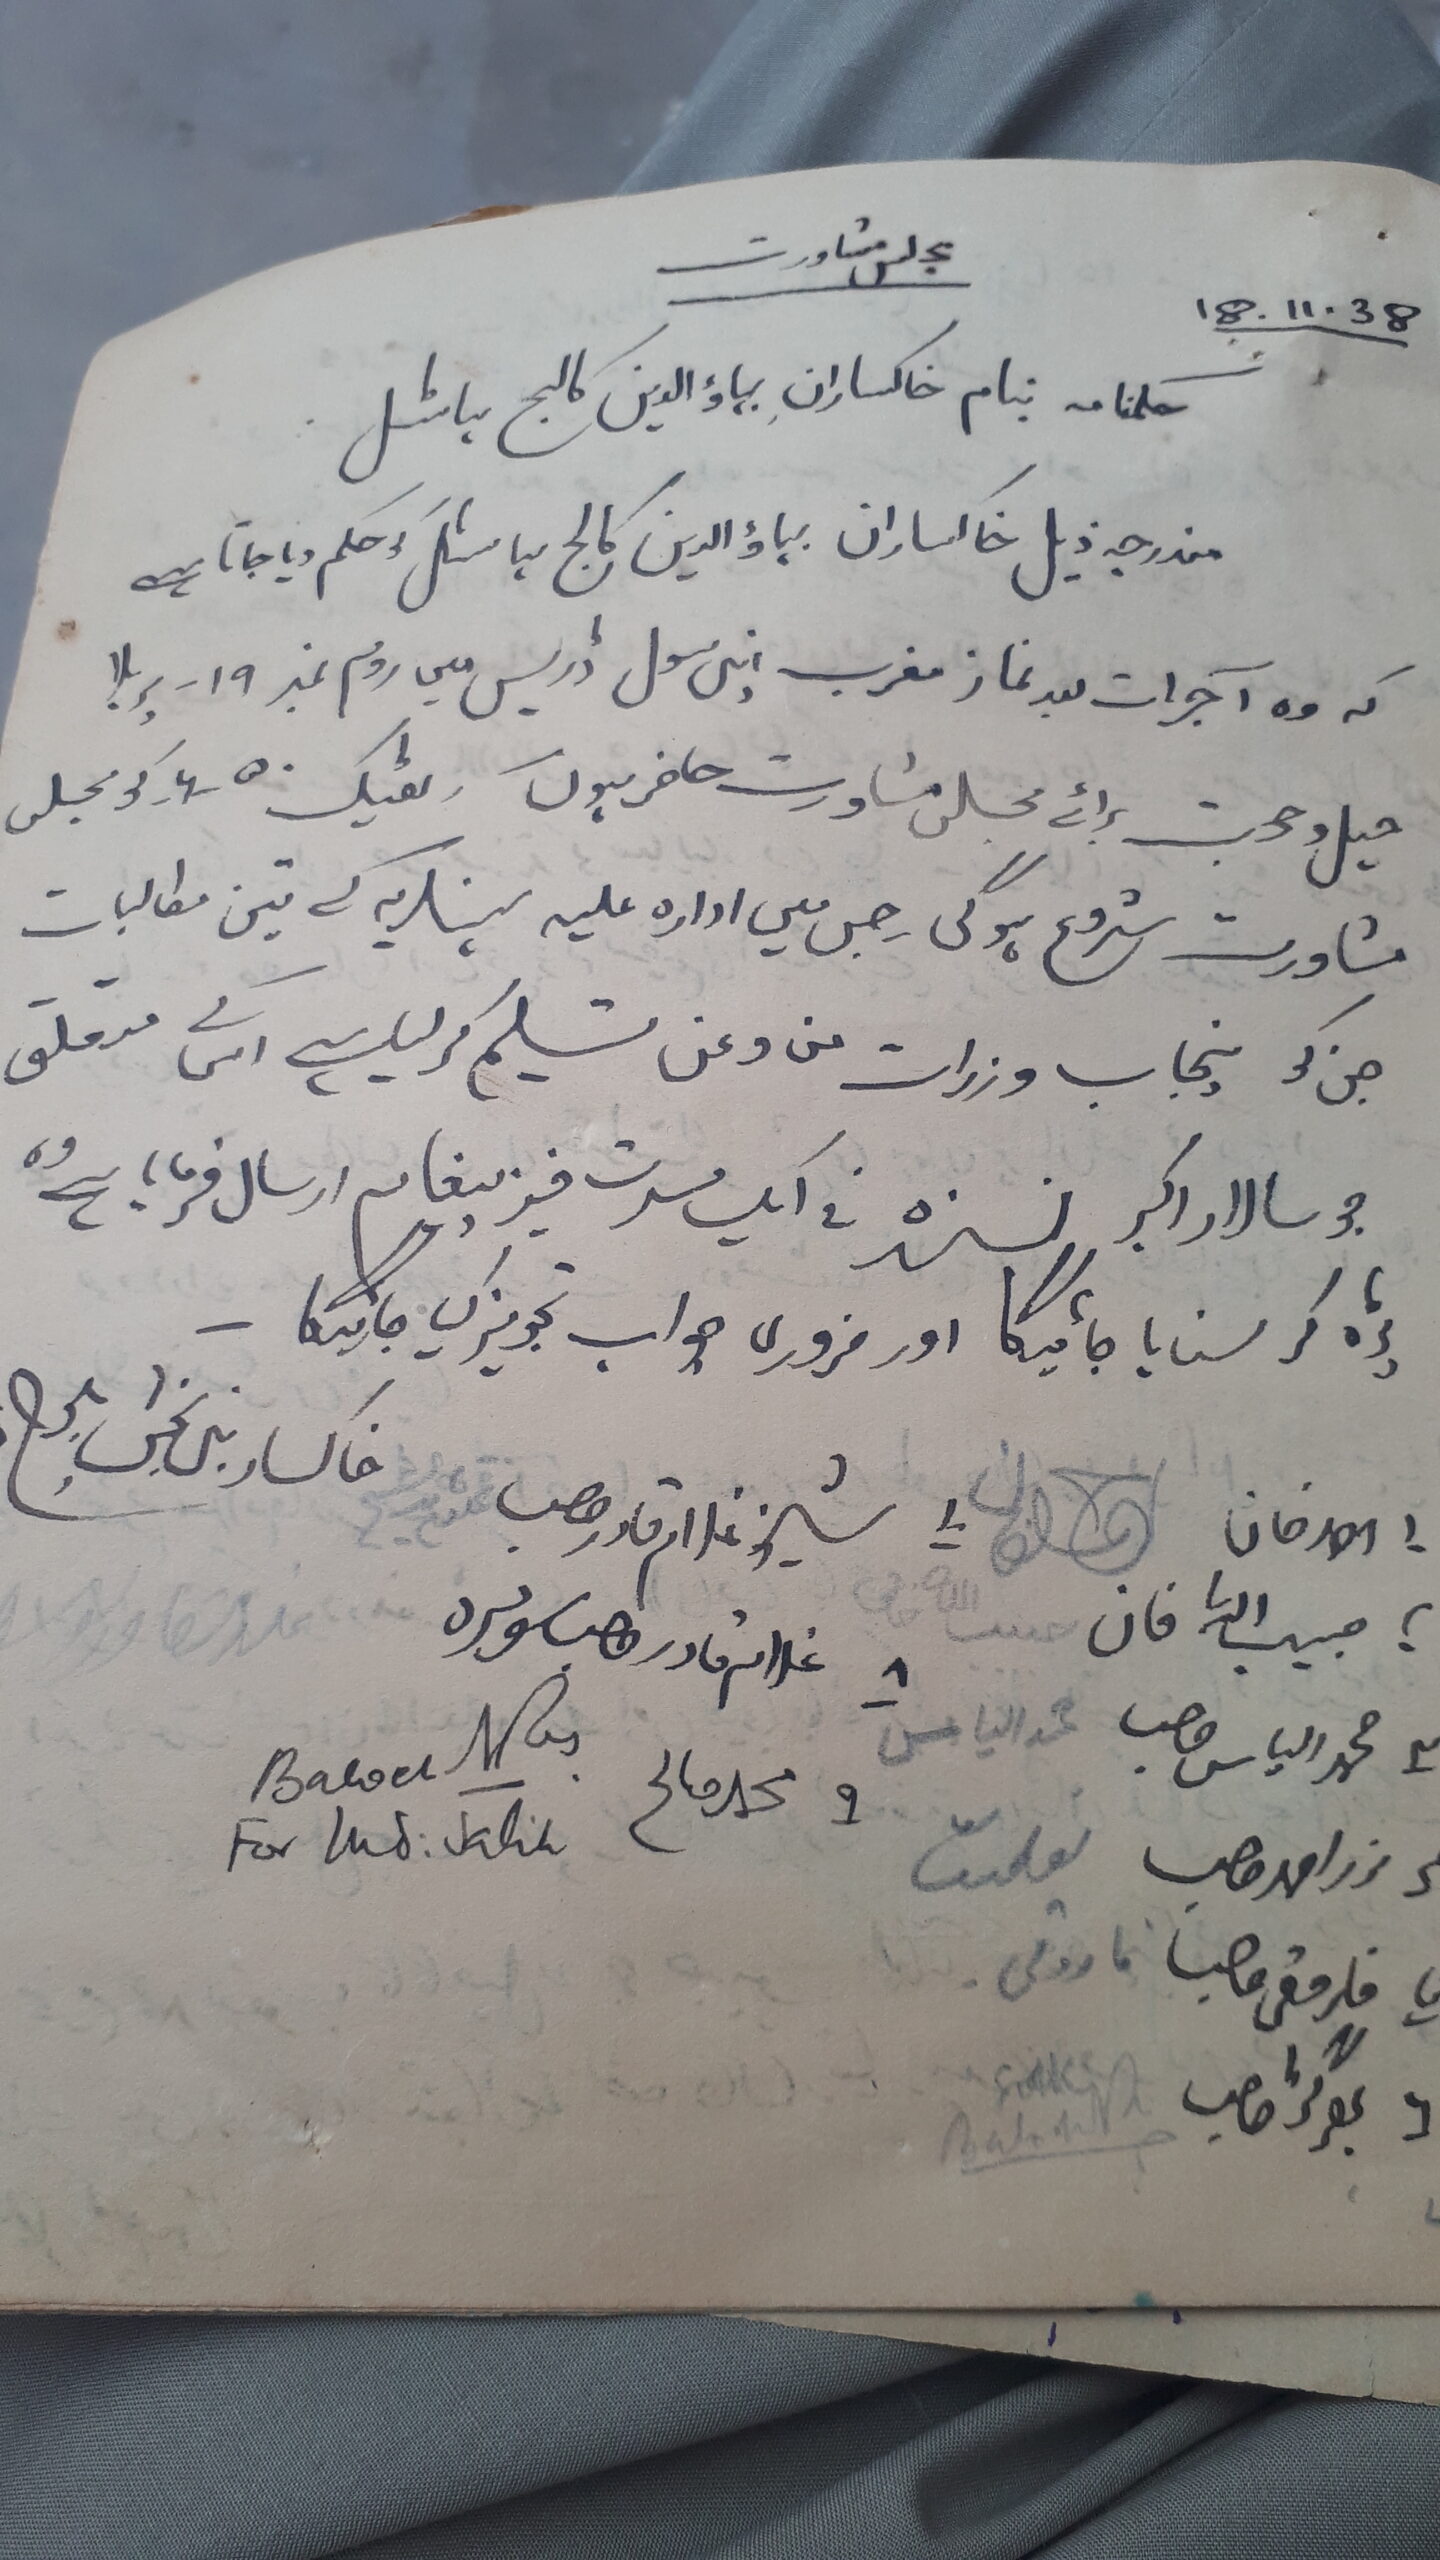 مجلس مشاورت
18.11.38
حکمنامہ بنام خاکساران بہاؤالدین کالج ہاسٹل
مندرجہ ذیل خاکساران بہاؤالدین کالج ہاسٹل کو حکم دیا جاتا ہے
کہ وہ آج رات بعد نماز مغرب اپنی سول ڈریس میں روم نمبر ۱۹ پر بلا
حیل و حجت برائے مجلس مشاورت حاضر ہوں ٹھیک کو مجلس
مشاورت شروع ہوگی جس میں ادارہ علیہ ہندیہ کے تین مطالبات
جن کو پنجاب وزرات من و عن تسلیم کر لیا ہے اس کے متعلق
جو سالار اکبر نے ایک مسرت خیز پیغام ارسال فرمایا ہے وہ
پڑھ کر سنایا جائیگا اور ضروری جواب تجویز کیا جائیگا -
خاکسار نبی بخش بلوچ
۱ احمد خان
۲ حبیب اللہ خان حبیب اللہ خان
۳ محمد الیاس صاحب محمد الیاس
۴ احمد صاحب
۵ فاروقی صاحب فاروقی
۶ صاحب
۷ شیخ غلام قادر صاحب
۸ غلام قادر صاحب سومرہ
۹ محمد صالح
Baloch N
For Md. Salih
Baloch